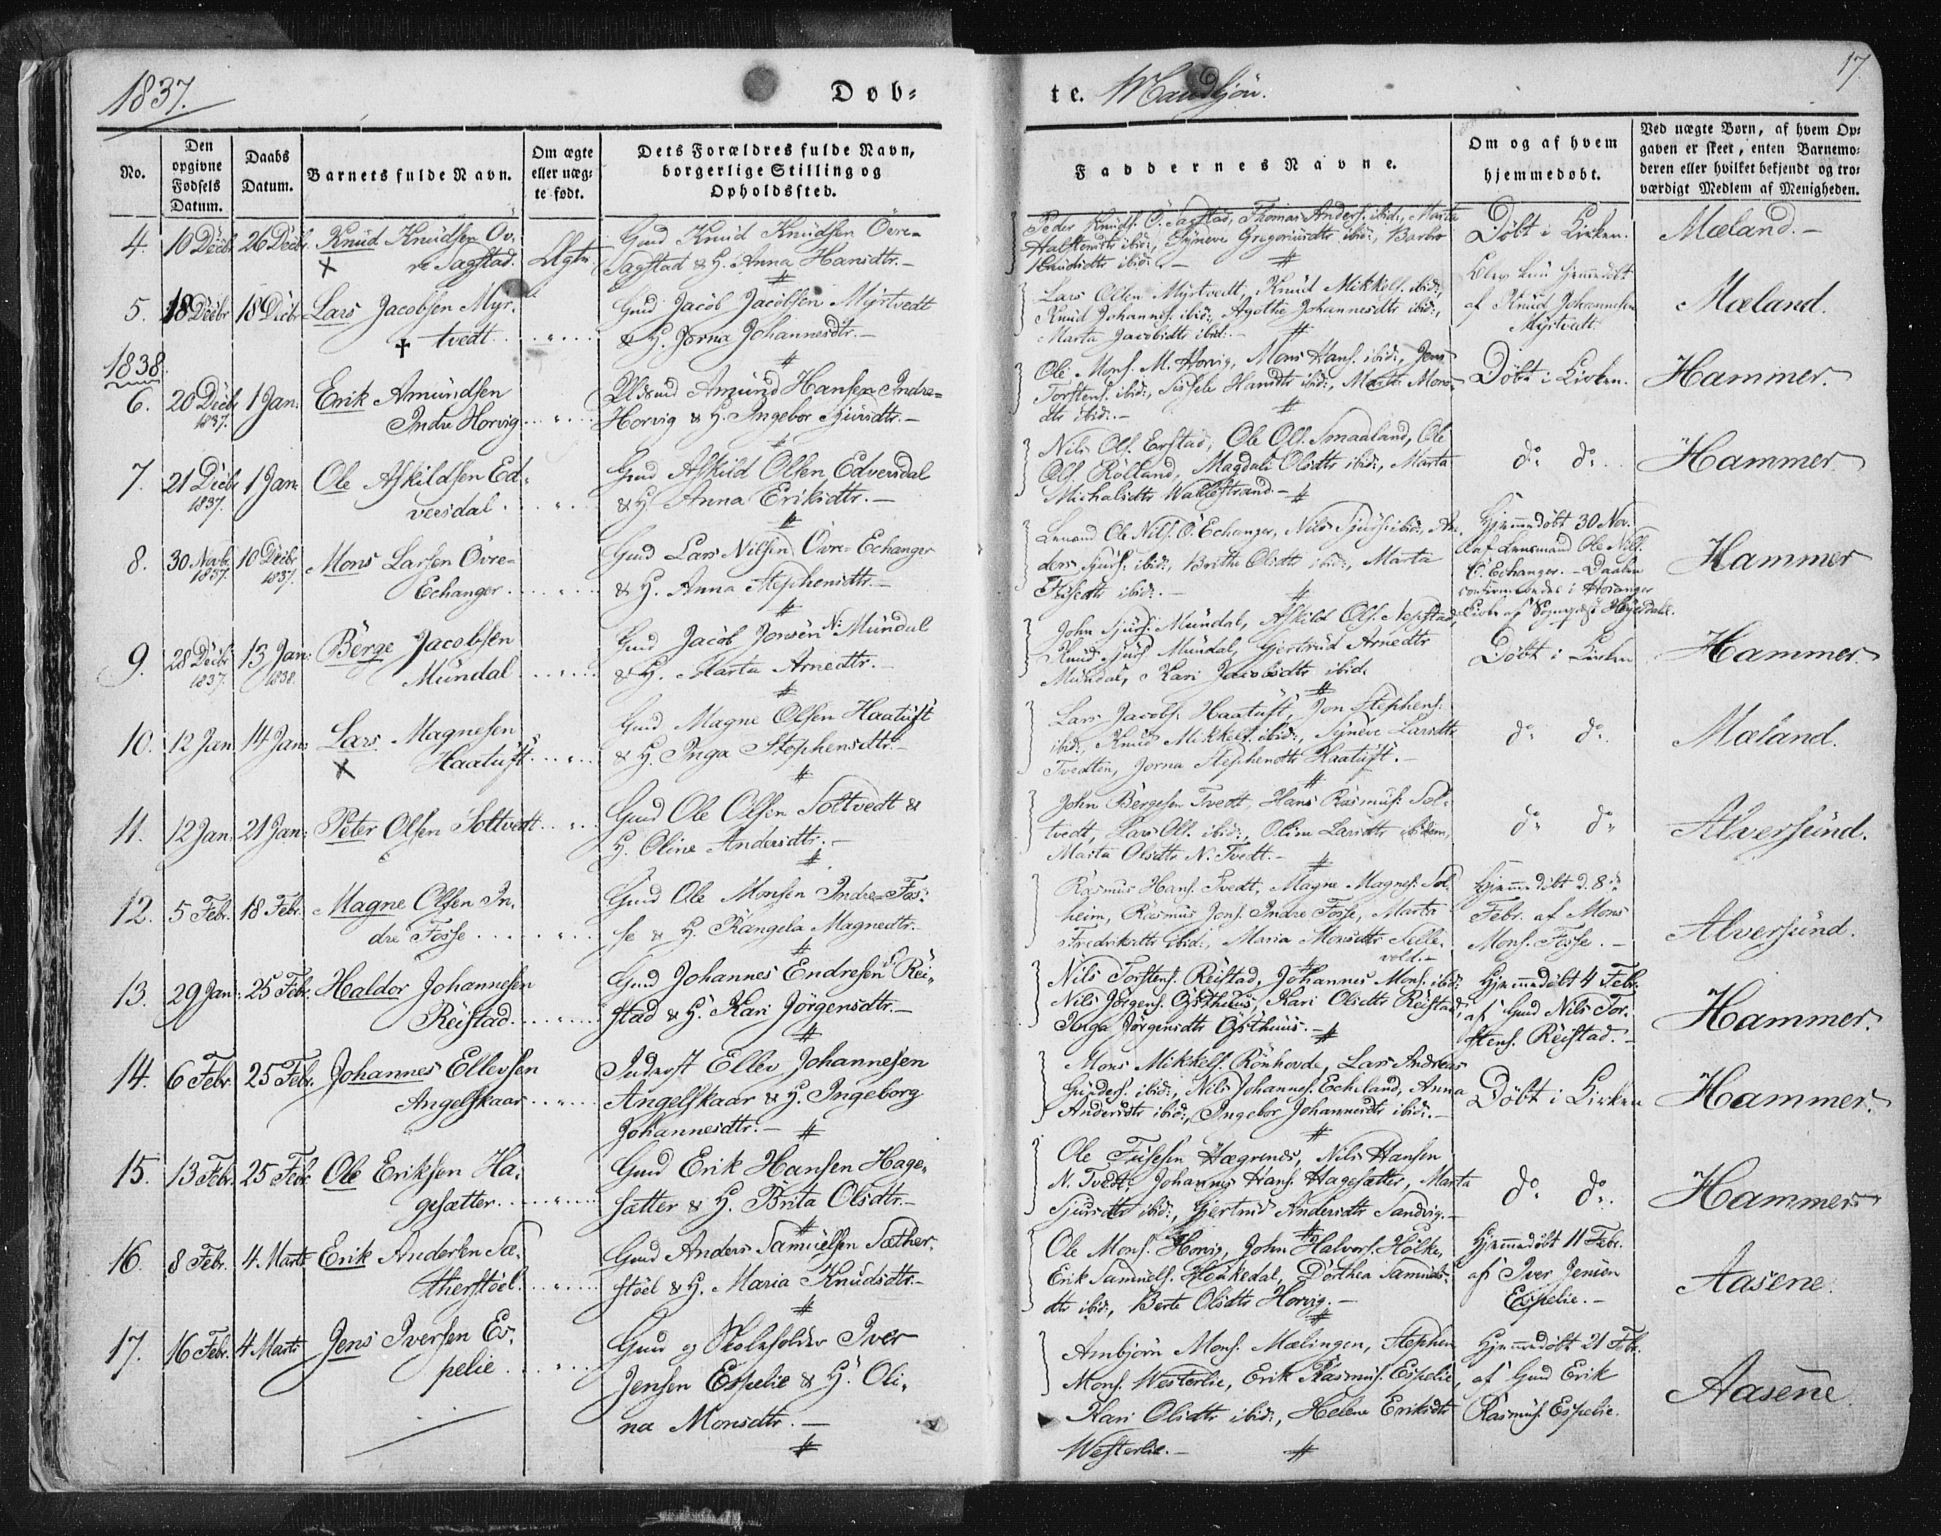 1837.
Døb=
te. Mandkjön.
17
No.
Den opgivne Fødsels Datum.
Daabs Datum.
Barnets fulde Navn.
Om ægte eller uæg= te født.
Dets Forældres fulde Navn, borgerlige Stilling og Opholdssted.
Faddernes Navne.
Om og af hvem hjemmedøbt.
Ved uægte Børn, af hvem Op= gaven er skeet, enten Barnemo= deren eller hvilket bekjendt og tro= værdigt Medlem af Menigheden.
4. 10 Decbr 26 Decbr Knud Knudsen Öv-
re Sagstad. Ægte.
Gmd Knud Knudsen Övre-
Sagstad & H. Anna Hansdtr.-
Peder Knuds. Ö. Sagstad, Thomas Anders. ibid:, Marta
Halstensdtr ibid:, Synneve Gregoriusdtr ibid:, Barbro
Knudsdtr ibid:.-
Döbt i Kirken.
Mæland.-
5. 18 Decbr 18 Decbr Lars Jacobsen Myr-
tvedt
Gmd Jacob Jacobsen Myrtvedt
& H. Jorna Johannesdtr.-
Lars Olsen Myrtvedt, Knud Mikkels. ibid:,
Knud Johannes. ibid:, Agothe Johannesdtr ibid:,
Marta Jacobsdtr ibid:.-
Blev kun hjemmedöbt
af Knud Johannesen
Myrtvedt.
Mæland.
1838.
6. 20 Decbr 1837. 1 Jan: Erik Amundsen
Indre Horvig
Amund Hansen Indre-
Horvig & H. Ingebor Sjursdtr.-
Ole Mons. M. Horvig, Mons Hans. ibid:, Jens
Torstens. ibid:, Sissele Hansdtr ibid:, Marta Mons-
dtr ibid:.-
Döbt i Kirken.
Hammer.
7. 21 Decbr 1837. 1 Jan: Ole Askildsen Ed-
versdal
Gmd Askild Olsen Edversdal
& H. Anna Eriksdtr.-
Nils Ols. Erstad, Ole Ols. Smaaland, Ole
Ols. Rölland, Magdali Olsdtr ibid:, Marta
Michalsdtr Walle strand.-
do. do.
Hammer
8. 30 Novbr 1837. 10 Decbr 1837. Mons Larsen Övre-
Echanger
Gmd Lars Nilsen Övre-Echanger
& H. Anna Stephensdtr.-
Lensmd Ole Nils. Ö. Echanger, Nils Sjurs. ibid:, An-
ders Sjurs. ibid:, Brithe Olsdtr ibid:, Marta
ibid:.-
Hjemmedöbt 30 Nov.
af Lensmand Ole Nils.
Ö. Echanger. - Daaben
i Hosanger
Kirke af Sognepræst
Hammer
9. 28 Decbr 1837. 13 Jan: 1838. Börge Jacobsen
Mundal
Gmd Jacob Jonsen N: Mundal
& H. Marta Arnedtr.-
John Sjurs. Mundal, Askild Ols. Nepstad,
Knud Sjurs. Mundal, Gjertrud Arnedtr
Mundal, Kari Jacobsdtr ibid.
Döbt i Kirken
Hammer.
10. 12 Jan: 14 Jan: Lars Magnesen
Haatuft
Gmd Magne Olsen Haatuft
& H. Inga Stephensdtr.-
Lars Jacobs. Haatuft, Jon Stephens.
ibid:, Knud Mikkels. ibid:, Syneve Larsdtr
Tvedten, Jorna Stephensdtr Haatuft.-
do. do.
Mæland.
11. 12 Jan: 21 Jan: Peter Olsen Soltvedt
Gmd Ole Olsen Soltvedt &
H. Oline Andersdtr.-
John Börgesen Tvedt, Hans Rasmus. Sol-
tvedt, Lars Ols. ibid:, Oline Larsdtr ibidem,
Marta Olsdtr N. Tvedt.-
do. do.
Alversund.
12. 5 Febr. 18 Febr. Magne Olsen In-
dre Fosse
Gmd Ole Monsen Indre-Fos-
se & H. Rangela Magnedtr.-
Rasmus Hans. Tvedt, Magne Magnes. Sol-
heim, Rasmus Jons. Indre Fosse, Marta
Fredriksdtr ibid:, Maria Monsdtr Selle-
vold.-
Hjemmedöbt d. 8de
Febr. af Mons
Mons. Fosse.-
Alversund.
13. 29 Jan: 25 Febr. Haldor Johannesen
Reistad
Gmd Johannes Endresen Rei-
stad & H. Kari Jörgensdtr.-
Nils Torstens. Reistad, Johannes Mons. ibid:
Nils Jörgens. Östhuus, Kari Olsdtr Reistad,
Inga Jörgensdtr Östhuus.-
Hjemmedöbt 4 Febr.
af Gmd Nils Tor-
stens. Reistad.-
Hammer.
14. 6 Febr. 25 Febr. Johannes Ellevsen
Angelskaar
Inderst Ellev Johannesen
Angelskaar & H. Ingeborg
Johannesdtr.-
Mons Mikkels. Rönhovde, Lars Andreas
Gunders. ibid:, Nils Johannes. Echeland, Anna
Andersdtr ibid:, Ingebor Johannesdtr ibid:.-
Döbt i Kirken
Hammer.
15. 13 Febr. 25 Febr. Ole Eriksen Ha-
gesætter
Gmd Erik Hansen Hage-
sætter & H. Brita Olsdtr.-
Ole Hægrenes, Nils Hansen
N. Tvedt, Johannes Hans. Hagesætter, Marta
Sjursdtr ibid:, Gjertrud Andersdtr Sandvig.-
do. do.
Hammer
16. 8 Febr. 4 Marts Erik Andersen Sæ-
therstöel
Gmd Anders Samuelsen Sæther-
stöel & H. Maria Knudsdtr.-
Ole Mons. Horvig, John Halvors. Holke,
Erik Samuels. Houkedal, Dorthea Samuels-
dtr ibid:, Berte Olsdtr Horvig.-
Hjemmedöbt 11 Febr.
af Iver Jensen
Espelie.-
Aasene.
17. 16 Febr. 4 Marts Jens Iversen Es-
pelie
Gmd og Skoleholder Iver
Jensen Espelie & H. Oli-
na Monsdtr.-
Ambjörn Mons. Mælingen, Stephen
Mons. Westerlie, Erik Rasmus. Espelie,
Kari Olsdtr ibid:, Helene Eriksdtr
Westerlie.-
Hjemmedöbt 21 Febr.
af Gmd Erik
Rasmus. Espelie.
Aasene